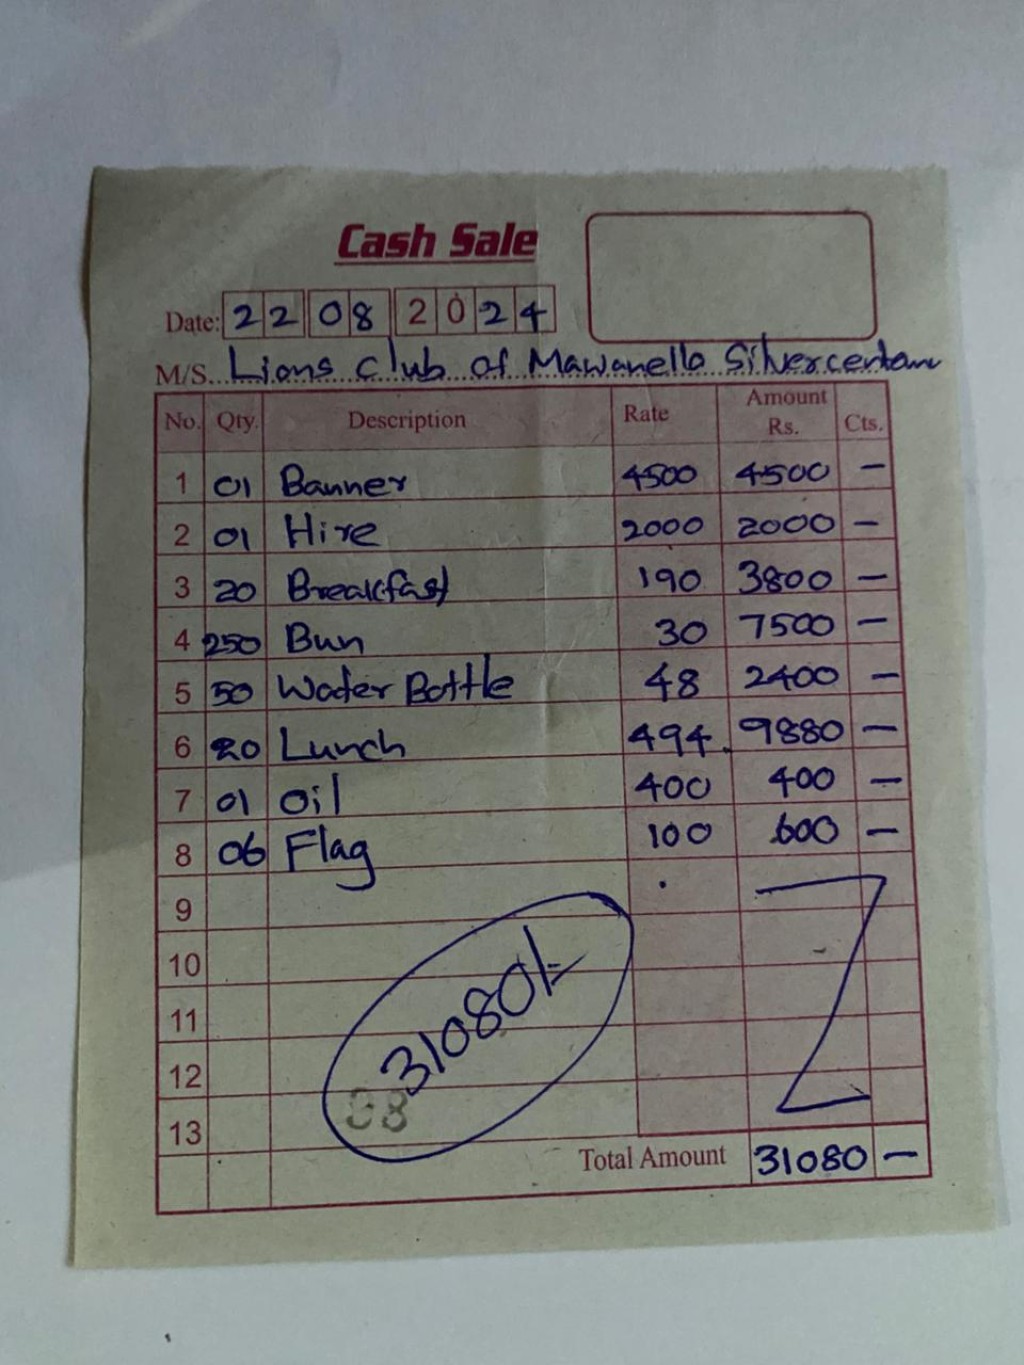 Cash Sale
Date: 22 08 2024
M/S. Lions Club of Mawanella
No. Qty. Description Rate Amount Rs. Cts.
1 01 Banner 4500 4500 -
2 01 Hire 2000 2000 -
3 20 Breakfast 190 3800 -
4 250 Bun 30 7500 -
5 50 Water Bottle 48 2400 -
6 20 Lunch 494 9880 -
7 01 Oil 400 400 -
8 06 Flag 100 600 -
9
10
11
12
13
31080/-
98
Total Amount 31080 -